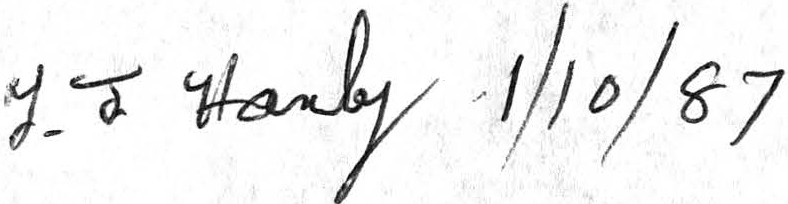 Y. J Hanby 1/10/87